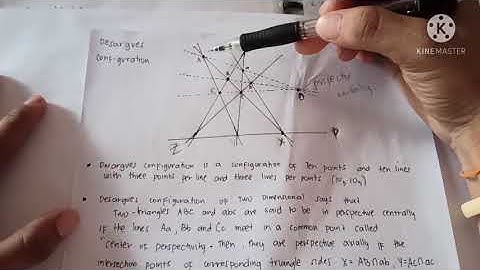 Desargues
configuration
KINEMASTER
Z
Y
X
• Desargues configuration is a configuration of Ten points and ten lines
with three points per line and three lines per points (10₃ 10₃)
• Desargues configuration of two Dimensional says that
Two-triangles ABC and abc are said to be in perspective centrally
if the lines Aa, Bb and Cc meet in a common point called
"center of perspectivity. Then, they are perspective axially if the
intersection points of corresponding triangle sides X = AB∩ab, Y=AC∩ac